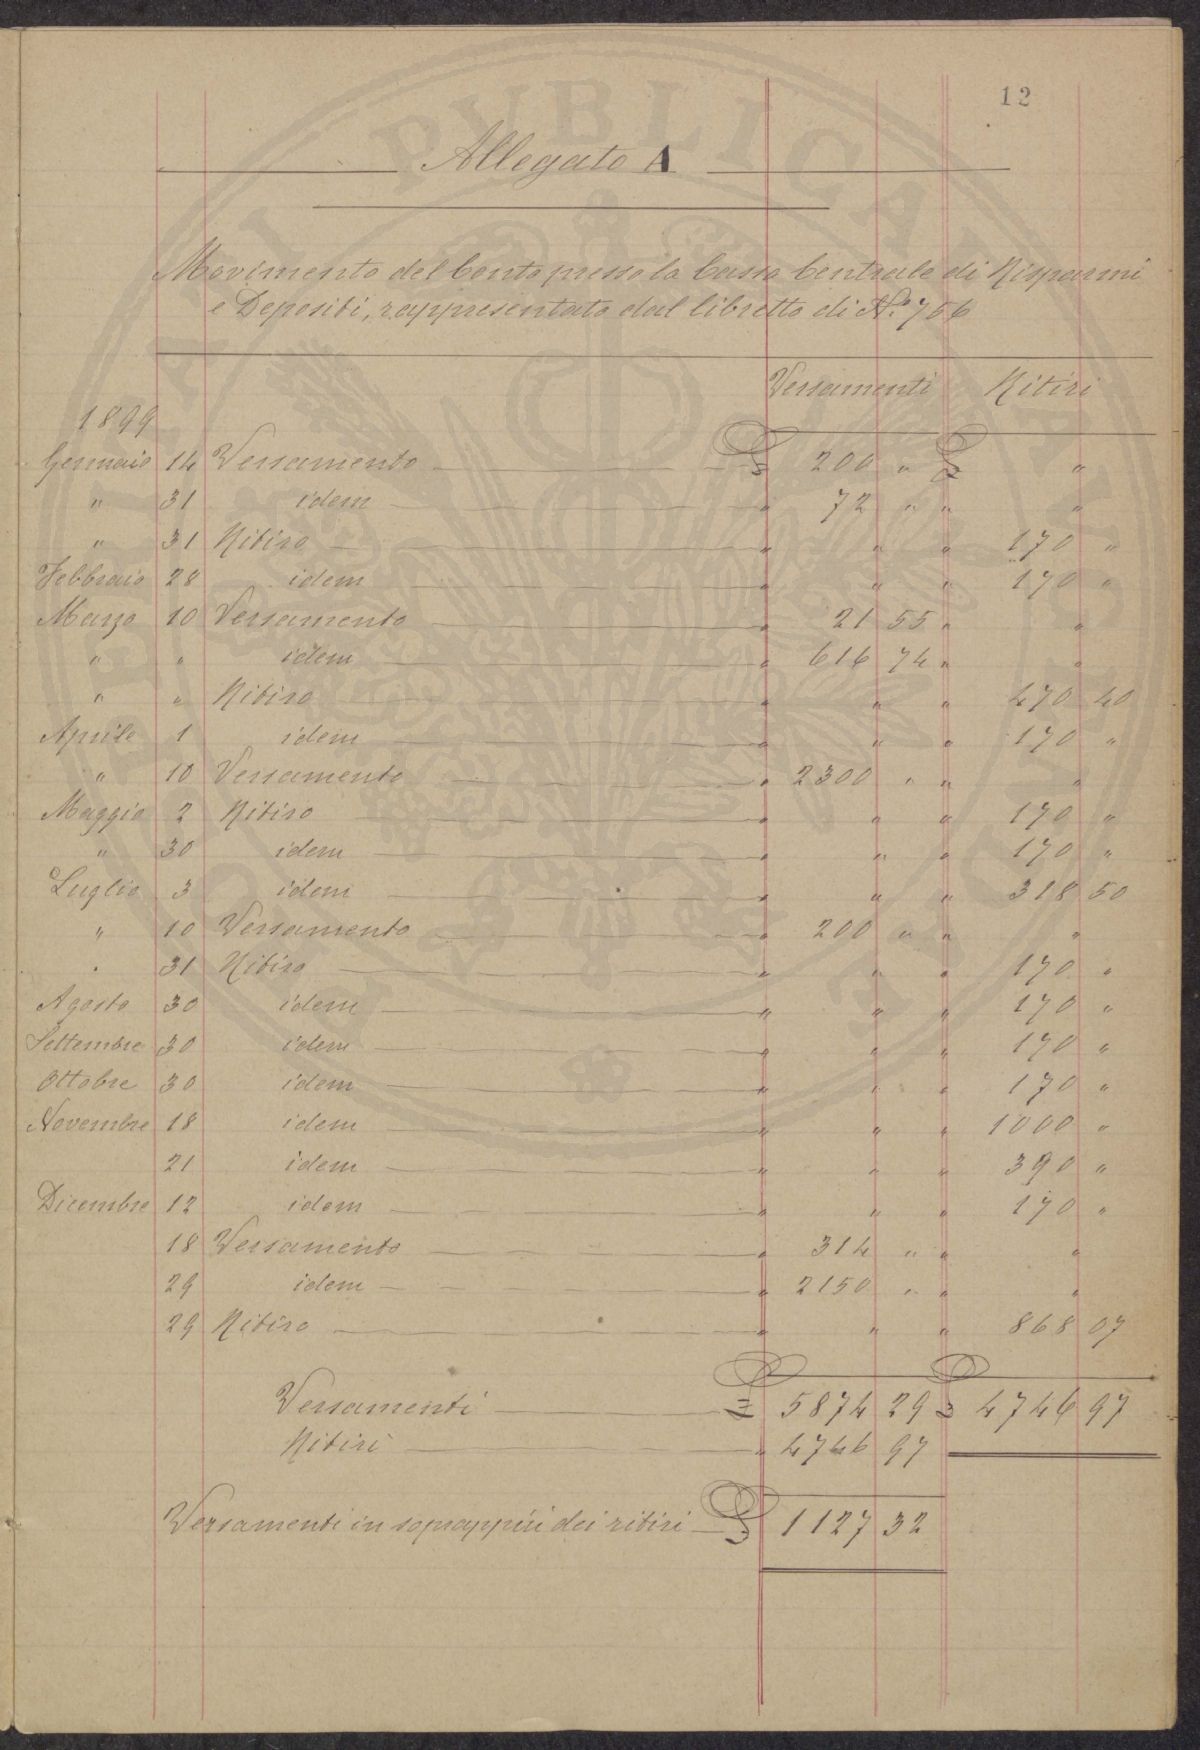 12
Allegato A
Movimento del Conto presso la Cassa Centrale di Risparmi
e Depositi, rappresentato dal libretto di N.º 756
Versamenti Ritiri
1899
Gennaio 14 Versamento £ 200 " £ "
" 31 idem " 72 " " "
" 31 Ritiro " " " 170 "
Febbraio 28 idem " " " 170 "
Marzo 10 Versamento " 21 55 " "
" " idem " 616 74 " "
" " Ritiro " " " 470 40
Aprile 1 idem " " " 170 "
" 10 Versamento " 2300 " " "
Maggio 2 Ritiro " " " 170 "
" 30 idem " " " 170 "
Luglio 3 idem " " " 318 50
" 10 Versamento " 200 " " "
" 31 Ritiro " " " 170 "
Agosto 30 idem " " " 170 "
Settembre 30 idem " " " 170 "
Ottobre 30 idem " " " 170 "
Novembre 18 idem " " " 1000 "
21 idem " " " 390 "
Dicembre 12 idem " " " 170 "
18 Versamento " 314 " " "
29 idem " 2150 " " "
29 Ritiro " " " 868 07
Versamenti £ 5874 29 £ 4746 97
Ritiri " 4746 97
Versamenti in soprappiù dei ritiri £ 1127 32